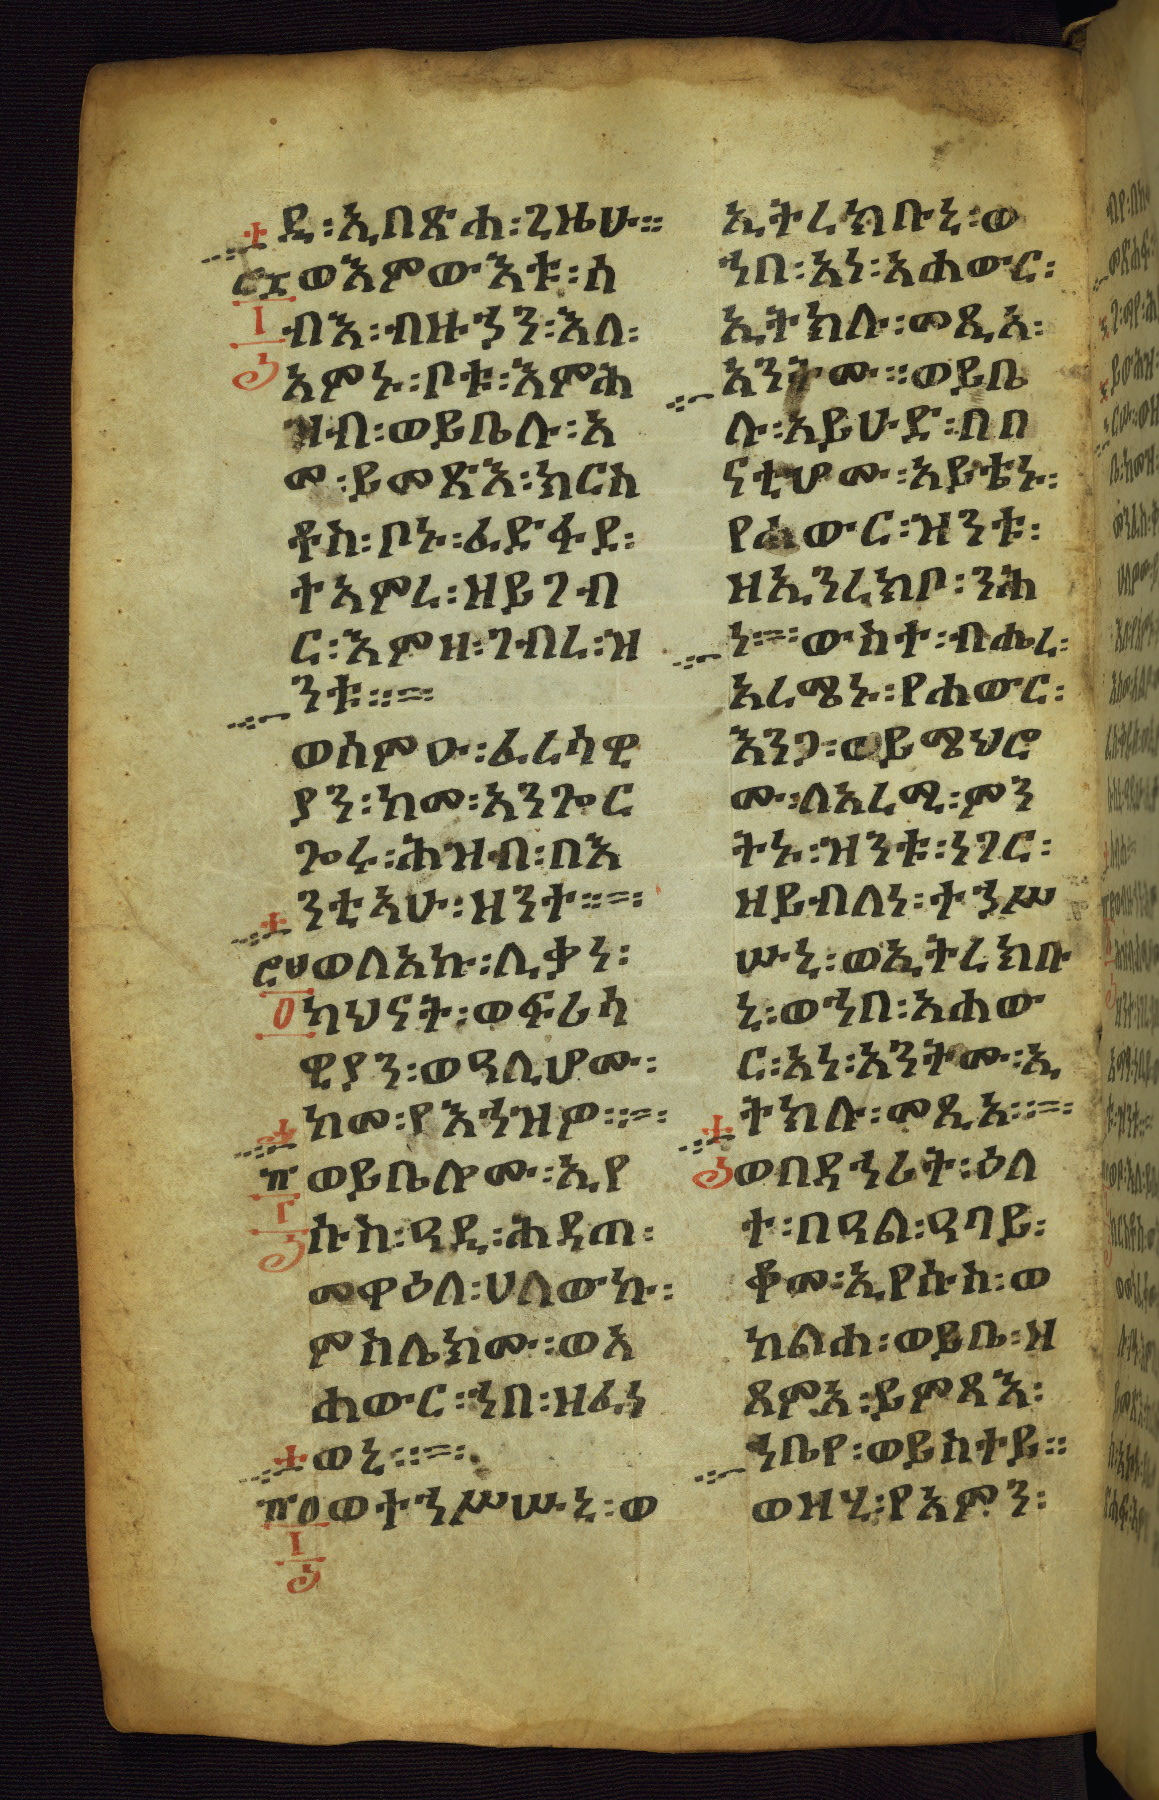 ዴ፡ኢበጽሐ፡ጊዜሁ።
ወእምውእቱ፡ሰ
ብእ፡ብዙኃን፡እለ፡
አምኑ፡ቦቱ፡እምሕ
ዝብ፡ወይቤሉ፡እ
መ፡ይመጽእ፡ክርስ
ቶስ፡ቦኑ፡ፈድፋደ፡
ተአምረ፡ዘይገብ
ር፡እምዘ፡ገብረ፡ዝ
ንቱ።
ወሰምዑ፡ፈሪሳዊ
ያን፡ከመ፡አንጐር
ጐሩ፡ሕዝብ፡በእ
ንቲአሁ፡ዘንተ።
ወለአኩ፡ሊቃነ፡
ካህናት፡ወፍሪሳ
ዊያን፡ወዓሊሆሙ፡
ከመ፡የአኀዝዎ።
ወይቤሎሙ፡ኢየ
ሱስ፡ዓዲ፡ሕዳጠ፡
መዋዕለ፡ሀለውኩ፡
ምስሌክሙ፡ወአ
ሐውር፡ኀበ፡ዘፈነ
ወኒ።
ወተኀሥሡኒ፡ወ
ኢትረክቡኒ፡ወ
ኀበ፡አነ፡አሐውር፡
ኢትክሉ፡መጺአ፡
አንትሙ።ወይቤ
ሉ፡አይሁድ፡በበ
ናቲሆሙ፡አይቴኑ፡
የሐውር፡ዝንቱ፡
ዘኢንረክቦ፡ንሕ
ነ።ውስተ፡ብሔረ፡
አረሜኑ፡የሐውር፡
እንጋ፡ወይሜህሮ
ሙ፡ለአረሚ፡ምን
ትኑ፡ዝንቱ፡ነገር፡
ዘይብለነ፡ተኀሥ
ሡኒ፡ወኢትረክቡ
ኒ፡ወኀበ፡አሐው
ር፡አነ፡አንትሙ፡ኢ
ትክሉ፡መጺአ።
ወበደኃሪት፡ዕለ
ት፡በዓል፡ዓባይ፡
ቆመ፡ኢየሱስ፡ወ
ከልሐ፡ወይቤ፡ዘ
ጸምአ፡ይምጻእ፡
ኀቤየ፡ወይስተይ።
ወዘሂ፡የአምን፡